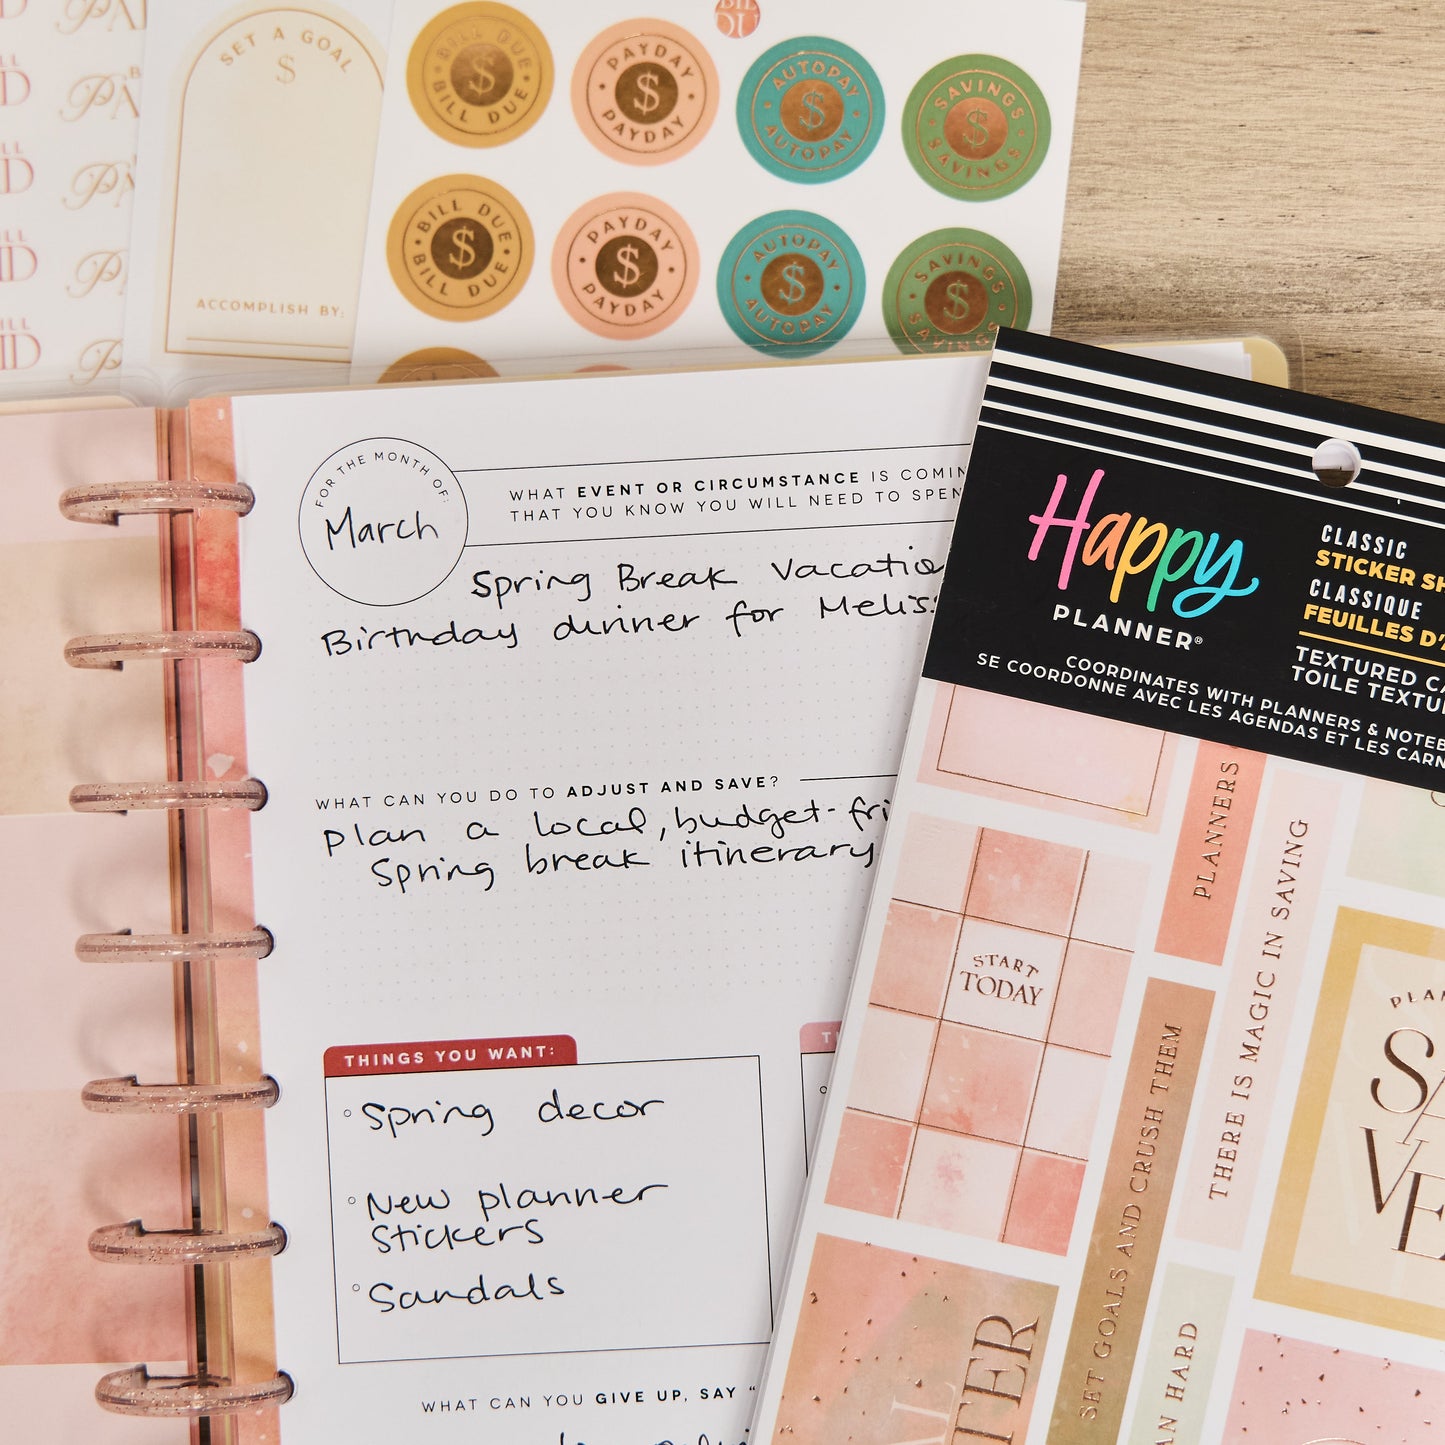 SET A GOAL
$
ACCOMPLISH BY:
BILL DUE $ BILL DUE
PAYDAY $ PAYDAY
AUTOPAY $ AUTOPAY
SAVINGS $ SAVINGS
BILL DUE $ BILL DUE
PAYDAY $ PAYDAY
AUTOPAY $ AUTOPAY
SAVINGS $ SAVINGS
FOR THE MONTH OF:
March
WHAT EVENT OR CIRCUMSTANCE IS
THAT YOU KNOW YOU WILL NEED TO
Spring Break
Birthday dinner for
WHAT CAN YOU DO TO ADJUST AND SAVE?
plan a local,
Spring break itinerary
THINGS YOU WANT:
Spring decor
New planner
Stickers
Sandals
WHAT CAN YOU GIVE UP, SAY "
Happy
PLANNER®
CLASSIC
STICKER
CLASSIQUE
FEUILLES
TEXTURED
TOILE
COORDINATES WITH PLANNERS &
SE COORDONNE AVEC LES AGENDAS ET LES
START
TODAY
PLANNERS
THERE IS MAGIC IN SAVING
SET GOALS AND CRUSH THEM
HARD